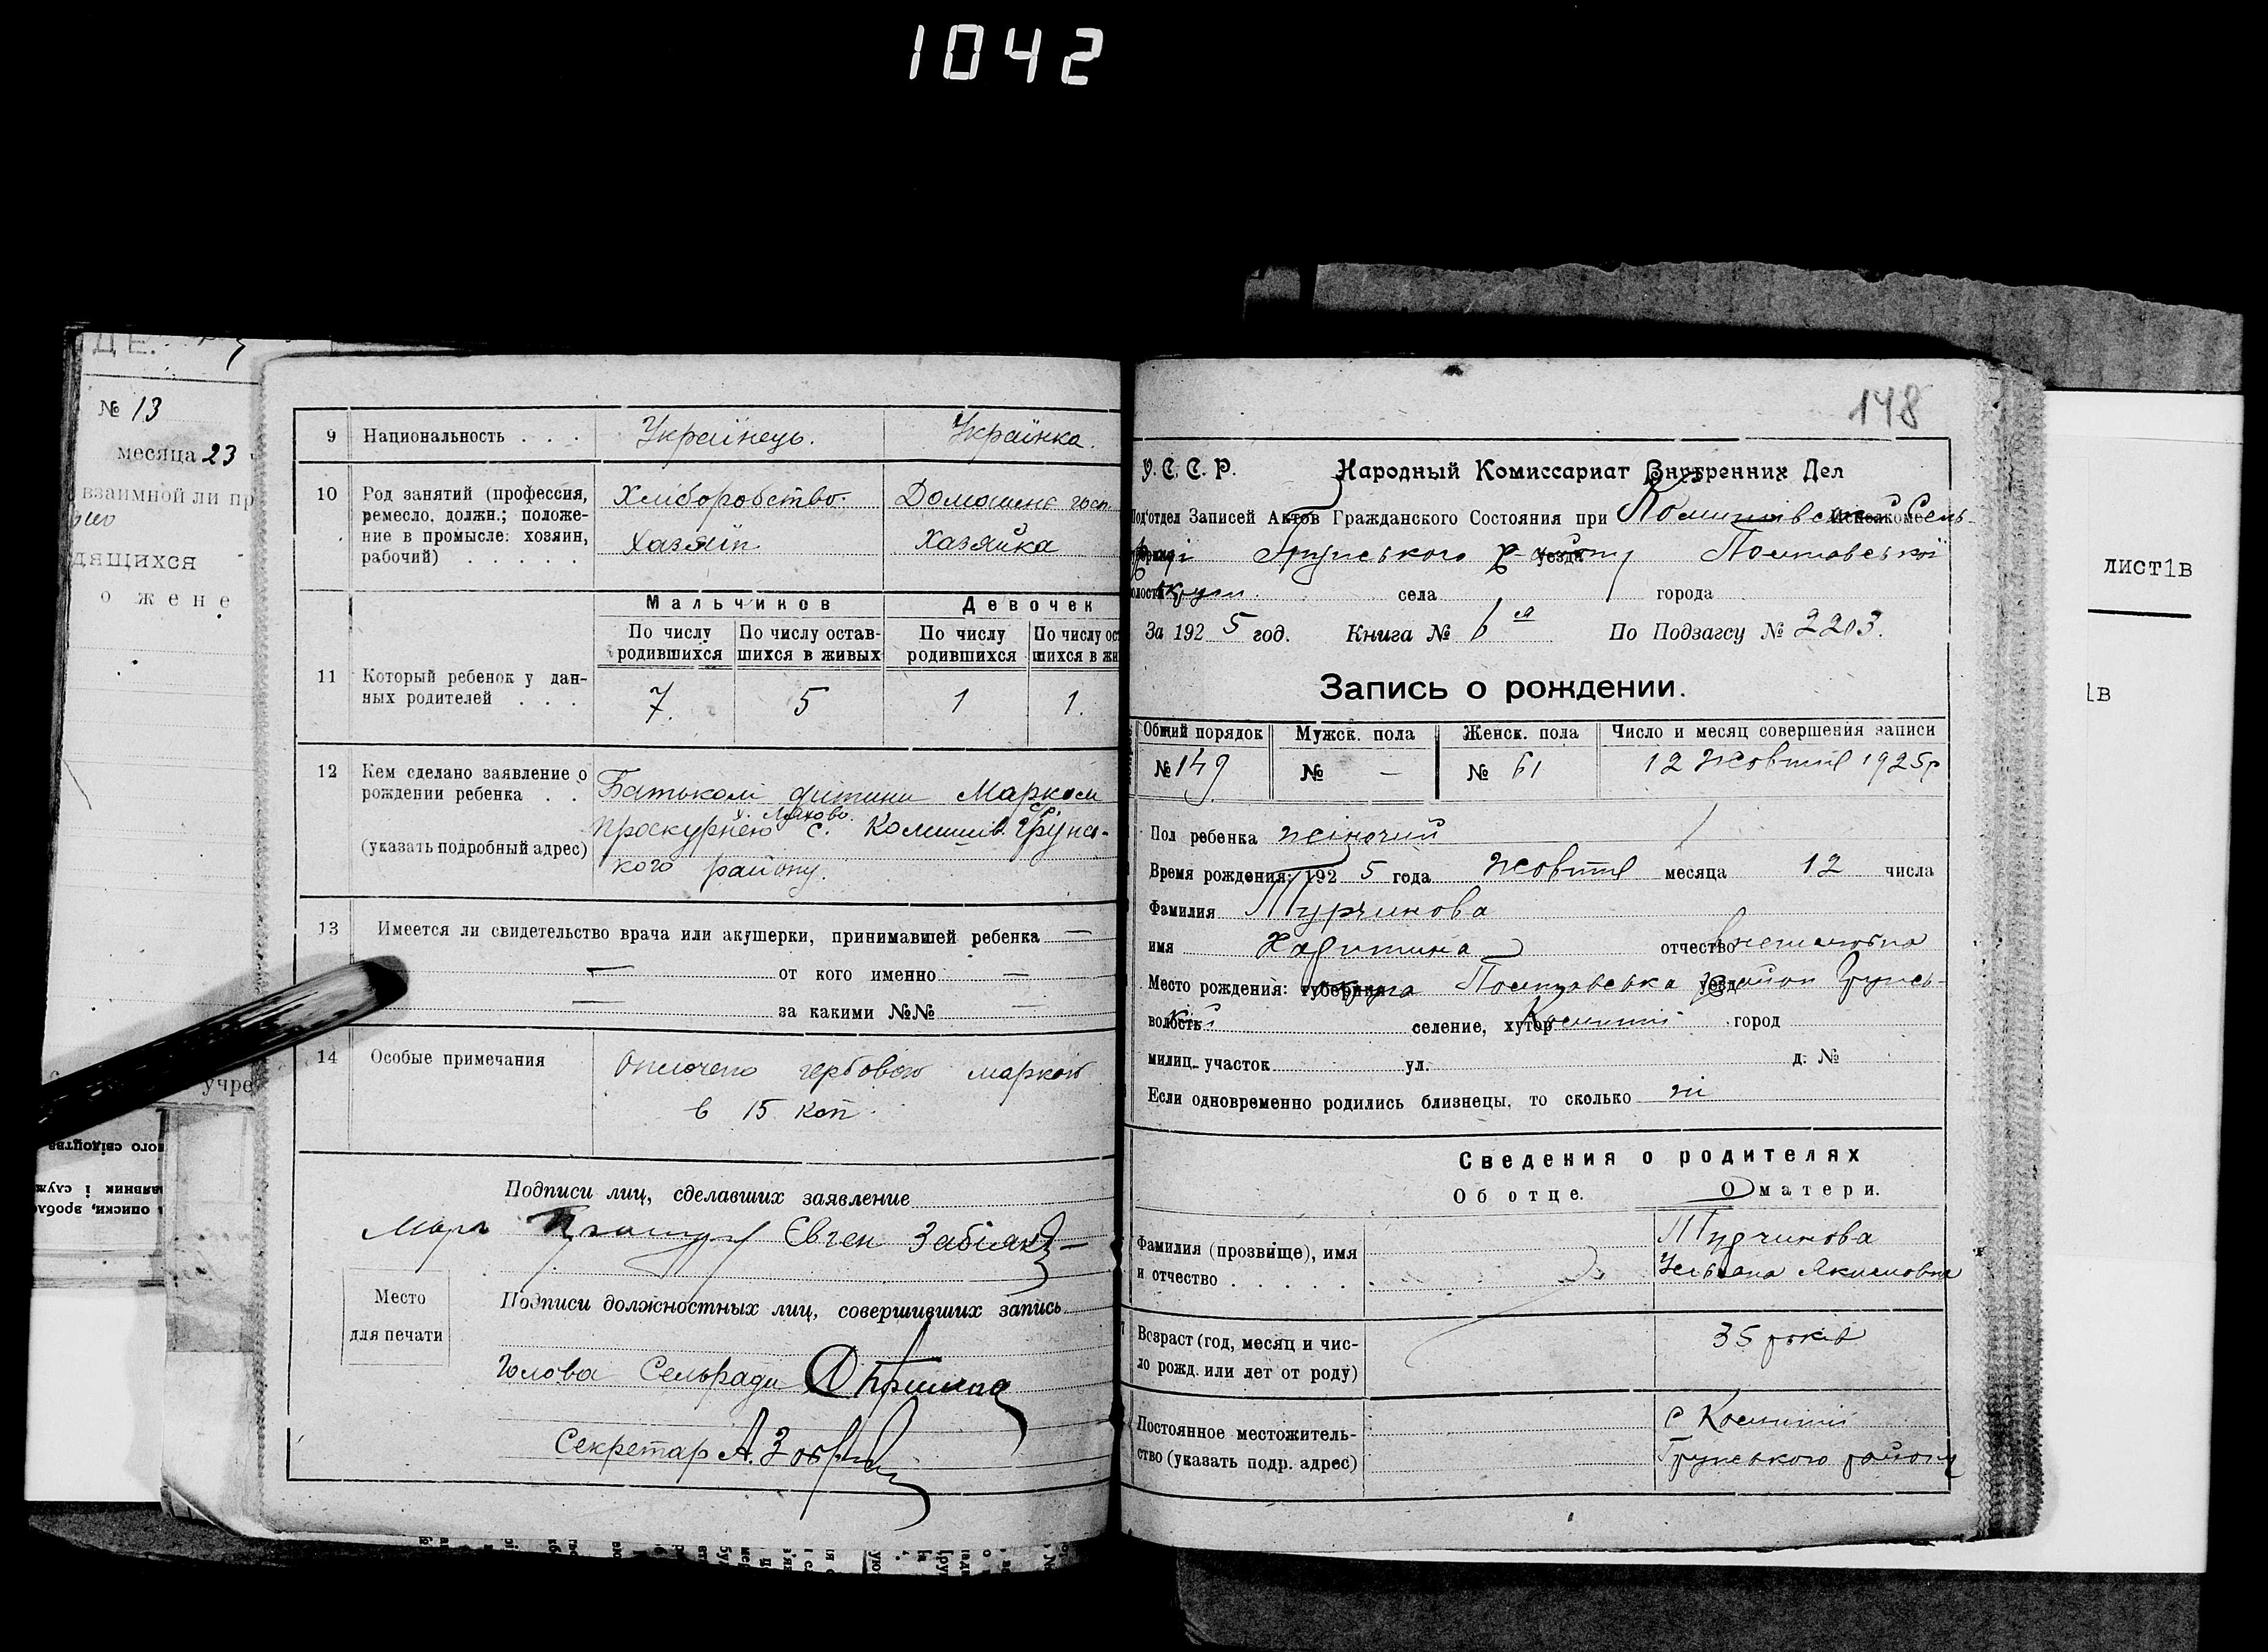 1042
№ 13
месяца 23
взаимной ли пр
дящихся
о жене
учре
9 Национальность . . . Українець. Українка.
10 Род занятий (профессия, ремесло, должн.; положе- ние в промысле: хозяин, рабочий) . . . . .
Хліборобство. Домашнє госп.
Хазяїн Хазяйка
Мальчиков Девочек
По числу родившихся По числу остав- шихся в живых По числу родившихся По числу ос шихся в жи
11 Который ребенок у дан- ных родителей . . .
7. 5 1 1.
12 Кем сделано заявление о рождении ребенка . .
(указать подробный адрес)
Батьком дитини Марком
Проскурнею с. Комиш. Грунс-
кого району.
13 Имеется ли свидетельство врача или акушерки, принимавшей ребенка —
— от кого именно —
— за какими №№ —
14 Особые примечания
Оплочено гербовою маркою
в 15 коп.
Подписи лиц, сделавших заявление
Марк Євген Забіяка
Место
для печати
Подписи должностных лиц, совершивших запись
Голова Сельради
Секретар А.
148
У. С. С. Р. Народный Комиссариат Внутренних Дел
Под'отдел Записей Актов Гражданского Состояния при Комишівській Исполкоме Сель-
раді Грунського р-ну уезда Полтавської
волости округи села города
За 192 5 год. Книга № 6 я По Подзагсу № 2203.
Запись о рождении.
Общий порядок Мужск. пола Женск. пола Число и месяц совершения записи
№ 149 № — № 61 12 жовтня 1925р
Пол ребенка жіночий
Время рождения: 192 5 года Жовтня месяца 12 числа
Фамилия Турчинова
имя Харитина отчество
Место рождения: губерния округа Полтавська уезд район Грунсь-
волость кий селение, хутор Комиші город
милиц. участок ул. д. №
Если одновременно родились близнецы, то сколько ні
Сведения о родителях
Об отце. О матери.
Фамилия (прозвище), имя
и отчество . . . . .
Турчинова
Уляна Якимовна
Возраст (год, месяц и чис-
ло рожд. или лет от роду)
35 років
Постоянное местожитель-
ство (указать подр. адрес)
с Комиші
Грунського району
лист1в
1в